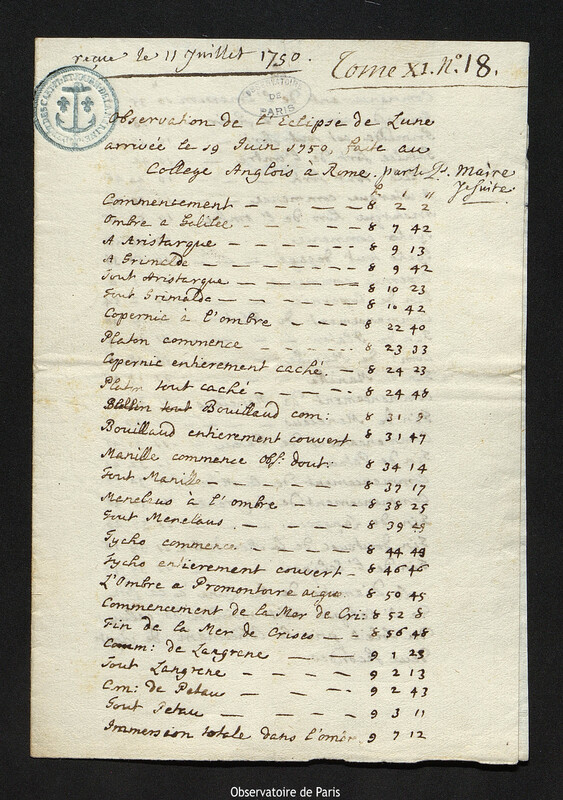 reçue le 11 Juillet 1750.
Tome XI. N.º 18.
OBSERVATOIRE DE PARIS
Observation de l'Eclipse de Lune
arrivée le 19 Juin 1750, faite au
College Anglois à Rome. par le P. Maire
Jesuite
h ' "
Commencement — 8 2 2
Ombre a Galilee — 8 7 42
A Aristarque — 8 9 13
A Grimalde — 8 9 42
Tout Aristarque — 8 10 23
Tout Grimalde — 8 10 42
Copernic à l'ombre — 8 22 40
Platon commence — 8 23 33
Copernic entierement caché. — 8 24 23
Platon tout caché — 8 24 48
Bouillaud com: 8 31 9
Bouillaud entierement couvert 8 31 47
Manille commence obs: dout: 8 34 14
Tout Manille — 8 37 17
Menelaus à l'ombre — 8 38 25
Tout Menelaus. — 8 39 29
Tycho commence. — 8 44 49
Tycho entierement couvert — 8 46 46
L'Ombre a Promontoire aigu. 8 50 45
Commencement de la Mer de Cri: 8 52 8
Fin de la Mer de Crises — 8 56 48
Comm: de Langrene — 9 1 23
Tout Langrene — 9 2 13
Com: de Petau — 9 2 43
Tout Petau — 9 3 11
Immersion totale dans l'ombr. 9 7 12
Observatoire de Paris